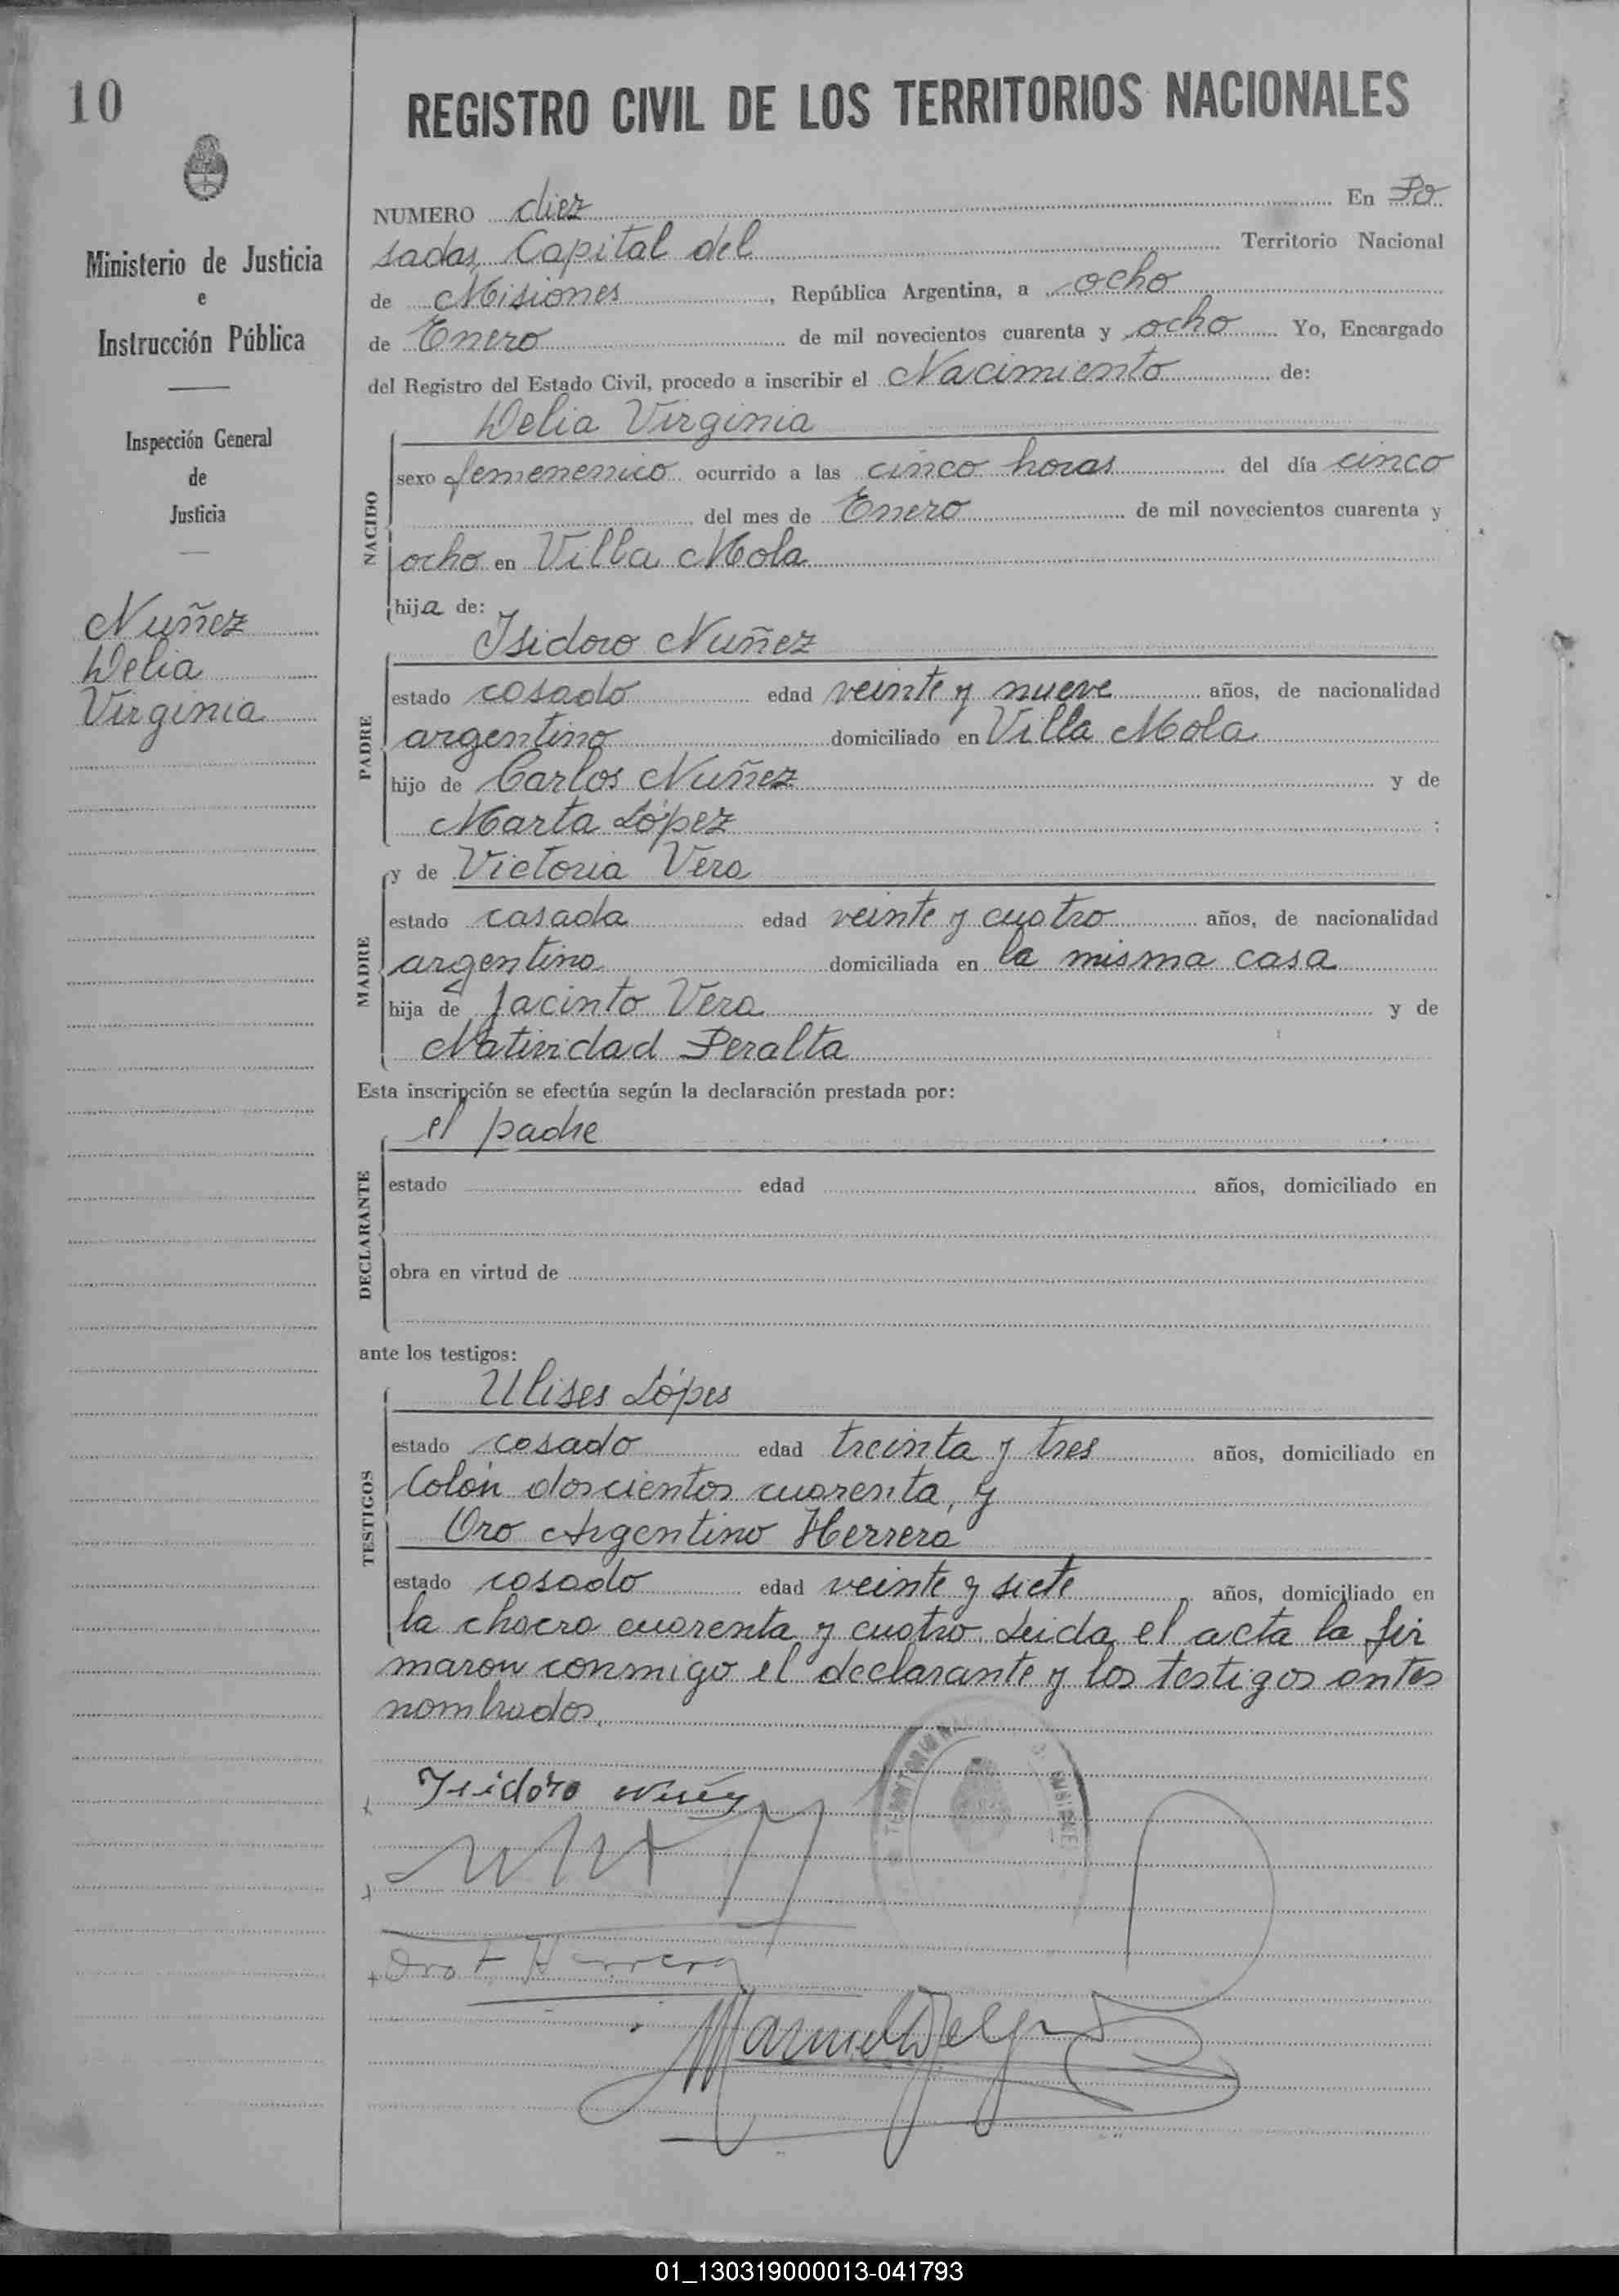 10
REGISTRO CIVIL DE LOS TERRITORIOS NACIONALES
Ministerio de Justicia
e
Instrucción Pública
Inspección General
de
Justicia
Nuñez
Delia
Virginia
NUMERO diez En Po
sadas, Capital del Territorio Nacional
de Misiones, República Argentina, a ocho
de Enero de mil novecientos cuarenta y ocho Yo, Encargado
del Registro del Estado Civil, procedo a inscribir el Nacimiento de:
Delia Virginia
NACIDO
sexo femenenico ocurrido a las cinco horas del día cinco
del mes de Enero de mil novecientos cuarenta y
ocho en Villa Mola
hija de:
Isidoro Nuñez
PADRE
estado casado edad veinte y nueve años, de nacionalidad
argentino domiciliado en Villa Mola
hijo de Carlos Nuñez y de
Marta López ;
y de Victoria Vera
MADRE
estado casada edad veinte y cuatro años, de nacionalidad
argentina domiciliada en la misma casa
hija de Jacinto Vera y de
Natividad Peralta
Esta inscripción se efectúa según la declaración prestada por:
el padre
DECLARANTE
estado edad años, domiciliado en
obra en virtud de
ante los testigos:
Ulises López
TESTIGOS
estado casado edad treinta y tres años, domiciliado en
Colón doscientos cuarenta, y
Oro Argentino Herrera
estado casado edad veinte y siete años, domiciliado en
la chacra cuarenta y cuatro. Leida el acta la fir
maron conmigo el declarante y los testigos antes
nombrados.
TERRITORIO NACIONAL DE MISIONES
Isidoro Nuñez
Oro A Herrera
01_130319000013-041793